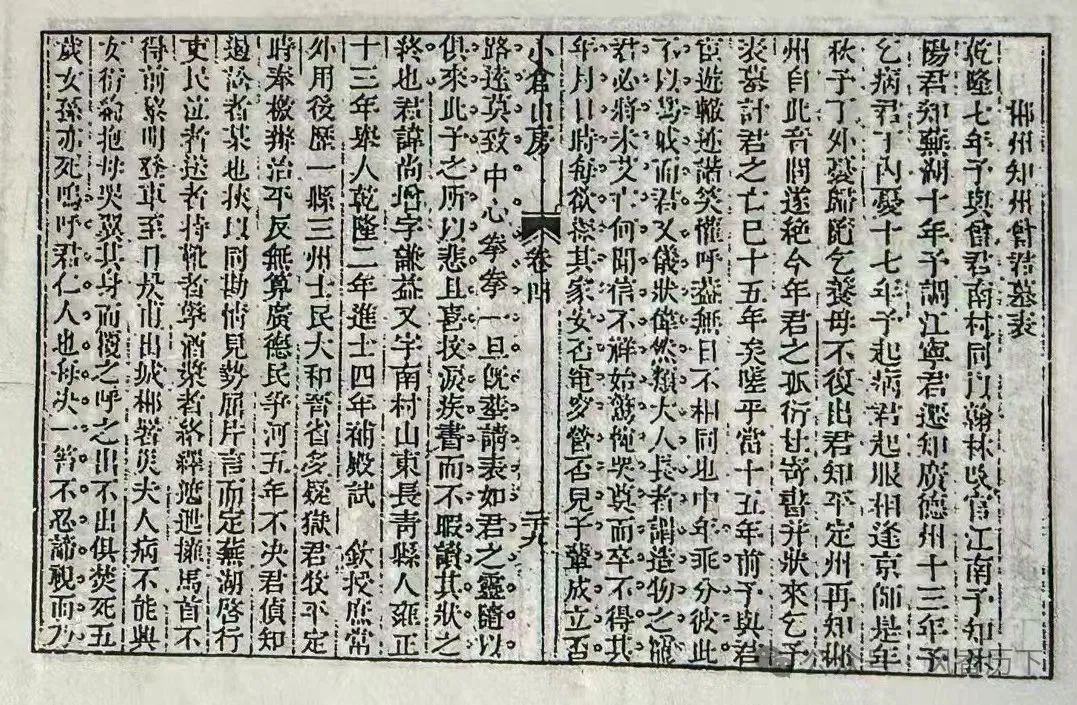 郴州知州曾君墓表
乾隆七年予與曾君南村同以翰林改官江南予知沭
陽君知蕪湖十年予調江寧君遷知廣德州十三年予
乞病君丁內憂十七年予起病君起服相逢京師是年
秋予丁外憂歸隨乞養母不復出君知平定州再知郴
州自此音問遂絕今年君之孤衍甘寄書并狀來乞予
表墓計君之亡巳十五年矣嗟乎當十五年前予與君
宦遊輙迹諧笑懽呼蓋無日不相同也中年乖分彼此
不以為戚而君又儀狀偉然類大人長者謂造物之寵
君必將未艾亡何聞信不祥始驚慟哭奠而卒不得其
年月日時每欲探其家安否窀穸營否兒子輩成立否
小倉山房 卷四 二九
路遠莫致中心拳拳一旦旣葬請表如君之靈隨以
俱來此予之所以悲且喜抆淚疾書而不暇讀其狀之
終也君諱尚增字謙益又字南村山東長青縣人雍正
十三年舉人乾隆二年進士四年補殿試 欽授庶常
外用後歷一縣三州士民大和晉省多疑獄君牧平定
時奉檄辦治平反無算廣德民爭河五年不決君偵知
過訟者某也挾以同勘情見勢屈片言而定蕪湖啓行
吏民泣者送者持靴者擎酒漿者絡繹遮迣擁馬首不
得前黎明登車至日昃甫出城郴署災夫人病不能興
女衍綸抱母哭翼其身而覆之呼之出不出俱焚死五
歲女孫亦死嗚呼君仁人也每決一笞不忍諦視而乃